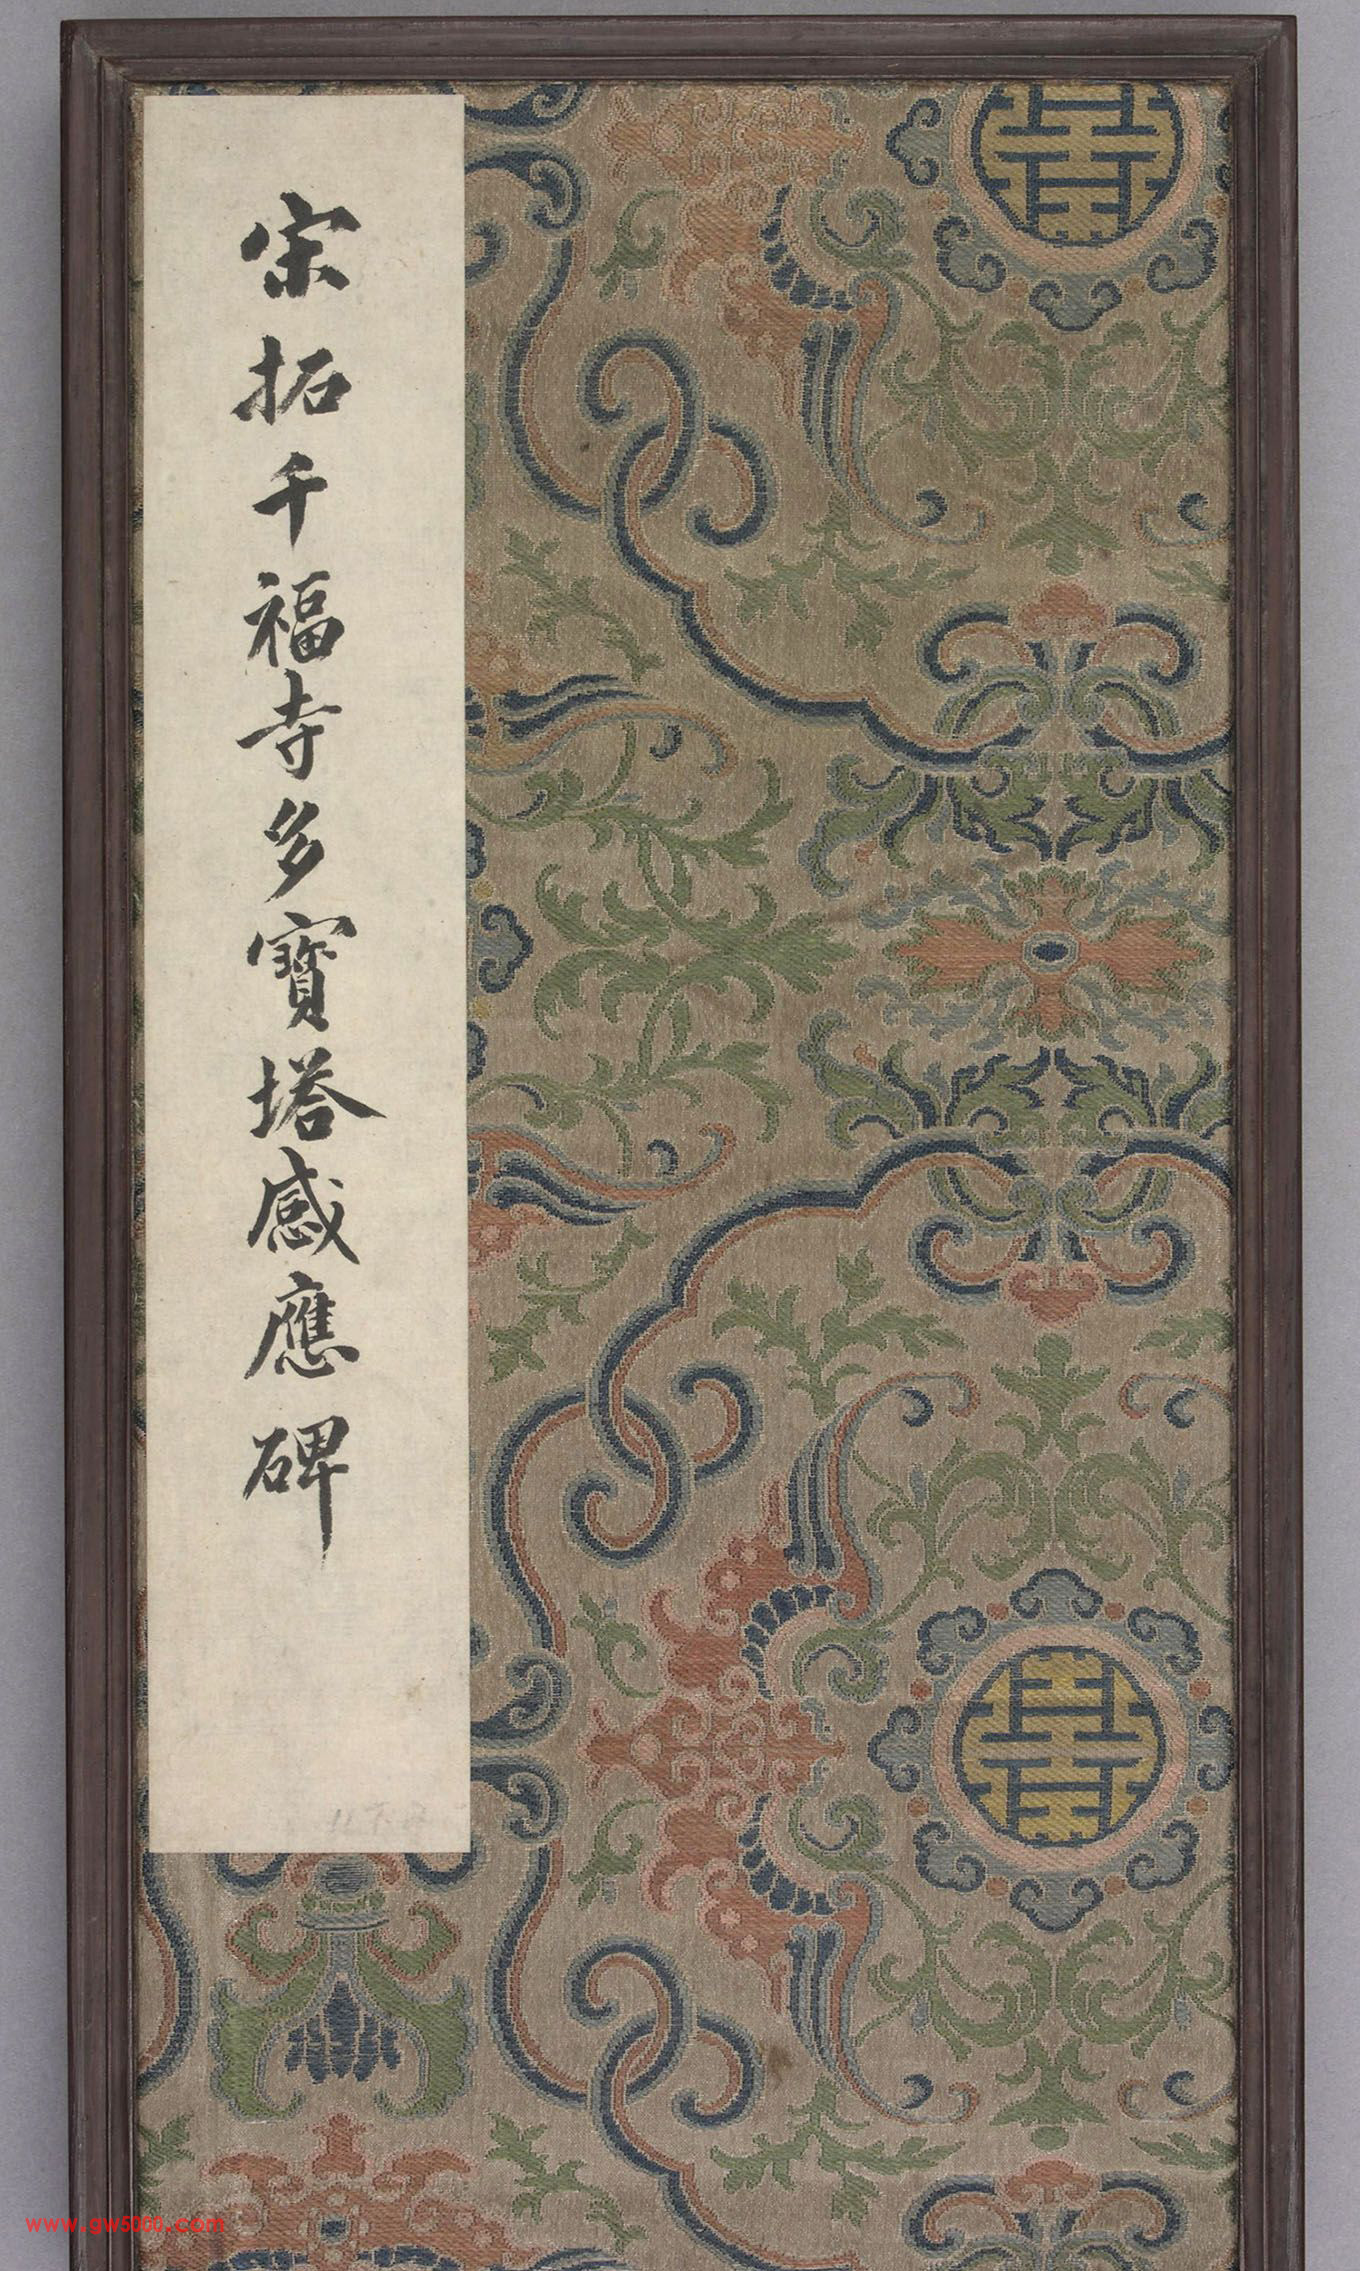 宋拓千福寺多寳塔感應碑
www.gw5000.com